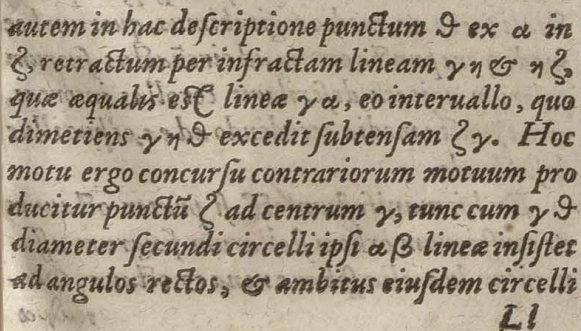 autem in hac deſcriptione punctum ϑ ex α in
ζ, retractum per infractam lineam γ η & η ζ,
quæ æqualis eſt lineæ γ α, eo interuallo, quo
dimetiens γ η ϑ excedit ſubtenſam ζ γ. Hoc
motu ergo concurſu contrariorum motuum pro
ducitur punctũ ζ ad centrum γ, tunc cum γ ϑ
diameter ſecundi circelli ipſi α β lineæ inſiſtet
ad angulos rectos, & ambitus eiuſdem circelli
Ll